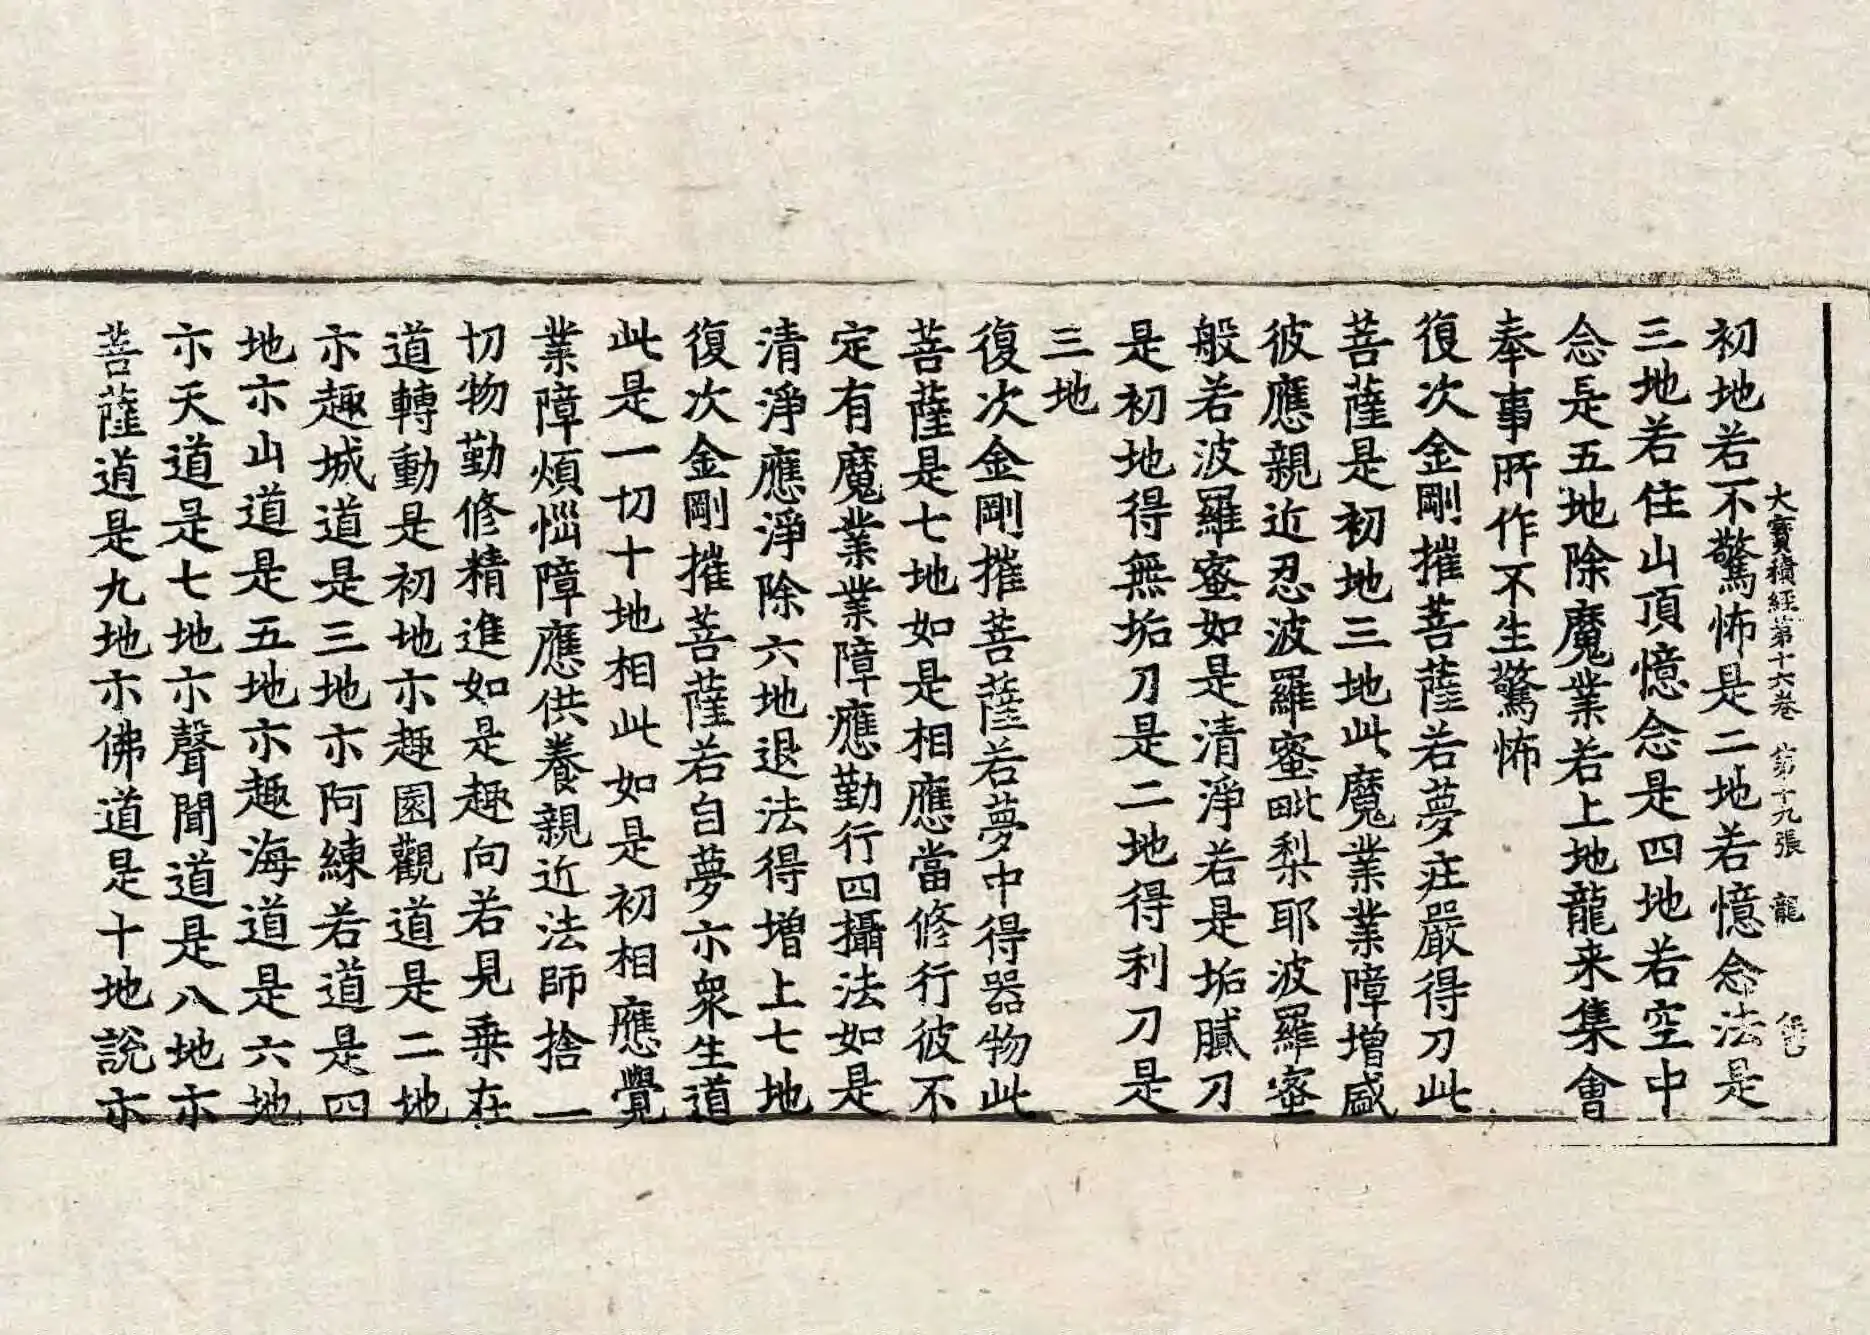 大寶積經第十六卷 第十九張 龍
初地若不驚怖是二地若憶念法是
三地若住山頂憶念是四地若空中
念是五地除魔業若上地龍来集會
奉事所作不生驚怖
復次金剛摧菩薩若夢庄嚴得刀此
菩薩是初地三地此魔業業障增盛
彼應親近忍波羅蜜毗梨耶波羅蜜
般若波羅蜜如是清淨若是垢膩刀
是初地得無垢刀是二地得利刀是
三地
復次金剛摧菩薩若夢中得器物此
菩薩是七地如是相應當修行彼不
定有魔業業障應勤行四攝法如是
清淨應淨除六地退法得增上七地
復次金剛摧菩薩若自夢亦衆生道
此是一切十地相此如是初相應覺
業障煩惱障應供養親近法師捨一
切物勤修精進如是趣向若見乗在
道轉動是初地亦趣園觀道是二地
亦趣城道是三地亦阿練若道是四
地亦山道是五地亦趣海道是六地
亦天道是七地亦聲聞道是八地亦
菩薩道是九地亦佛道是十地說亦